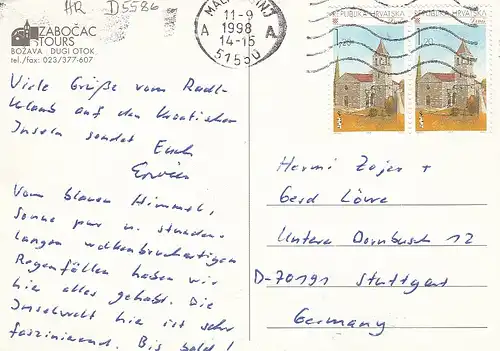 HR D5586
ZABOČAC
TOURS
BOŽAVA DUGI OTOK
tel./fax: 023/377-607
11-9
1998
14-15
A A
51550
REPUBLIKA HRVATSKA
1,20
REPUBLIKA HRVATSKA
1,20
Viele Grüße vom Radl-
Urlaub auf den Kroatischen
Inseln sendet Euch
Erwin
Vom blauen Himmel,
Sonne pur u. stunden-
langen wolkenbruchartigen
Regenfällen haben wir
hie alles gehabt. Die
Inselwelt hie ist sehr
faszinierend. Bis bald!
Hermi Zajer +
Gerd Löwe
Untere Dornbusch 12
D-70191 Stuttgart
Germany